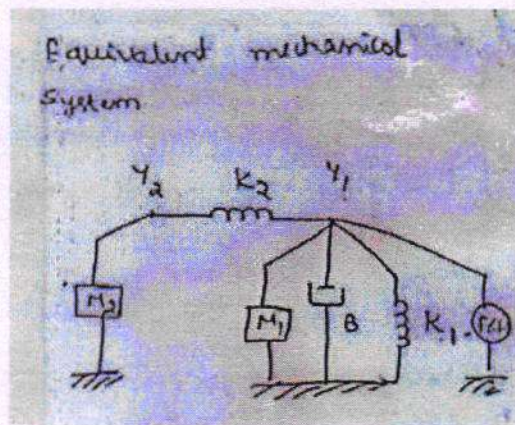 Equivalent mechanical
System
Y2 K2 Y1
M2
M1
B
K1